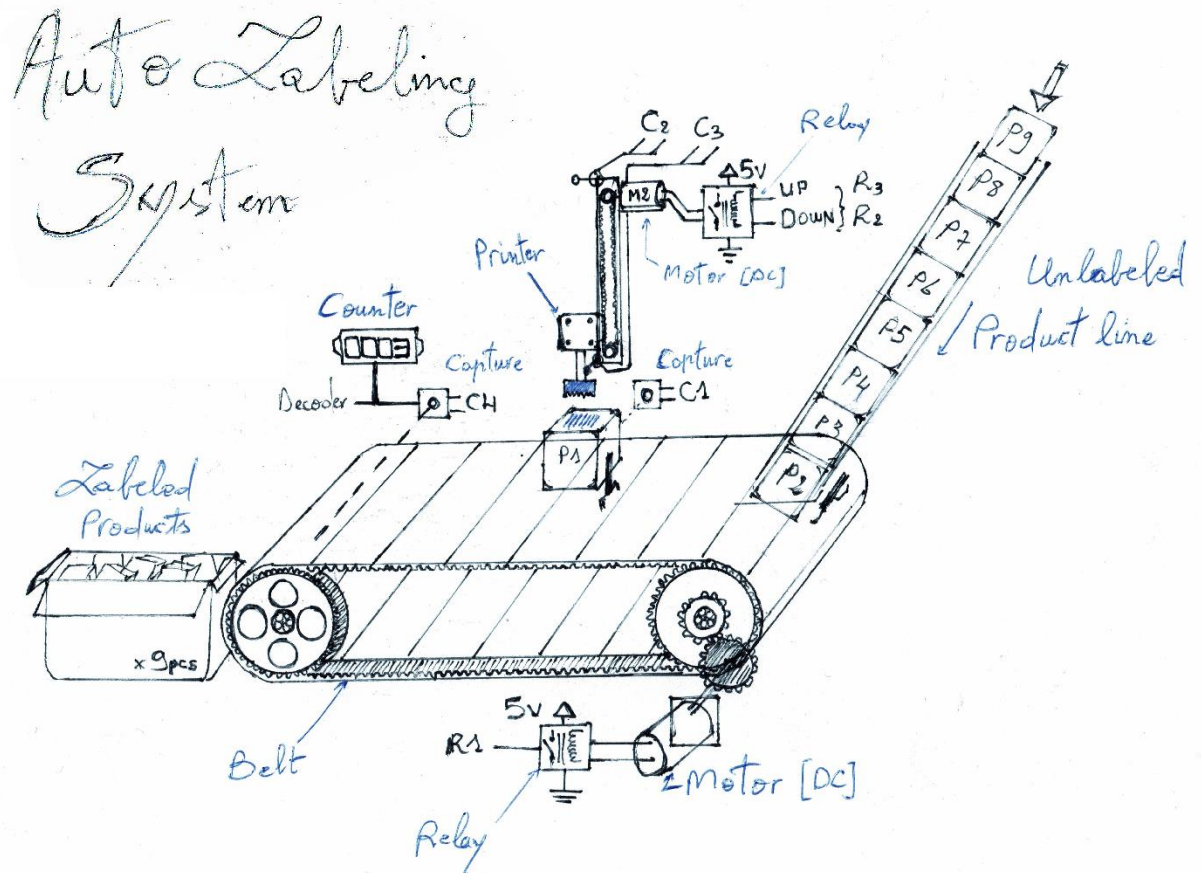 Auto Labeling
System
C2
C3
Relay
5v
UP
DOWN
R3
R2
M2
Motor [DC]
Printer
Counter
0003
Capture
Decoder
C4
Capture
C1
P1
P9
P8
P7
P6
P5
P4
P3
P2
Unlabeled
Product line
Labeled
Products
x 9pcs
Belt
5v
R1
Relay
Motor [DC]